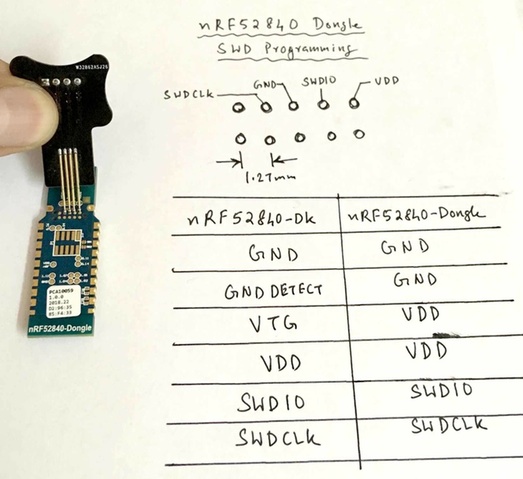 nRF52840 Dongle
SWD Programming
SWDCLK GND SWDIO VDD
1.27mm
nRF52840-DK nRF52840-Dongle
GND GND
GND DETECT GND
VTG VDD
VDD VDD
SWDIO SWDIO
SWDCLK SWDCLK
PCA10059
1.0.0
2018.21
nRF52840-Dongle